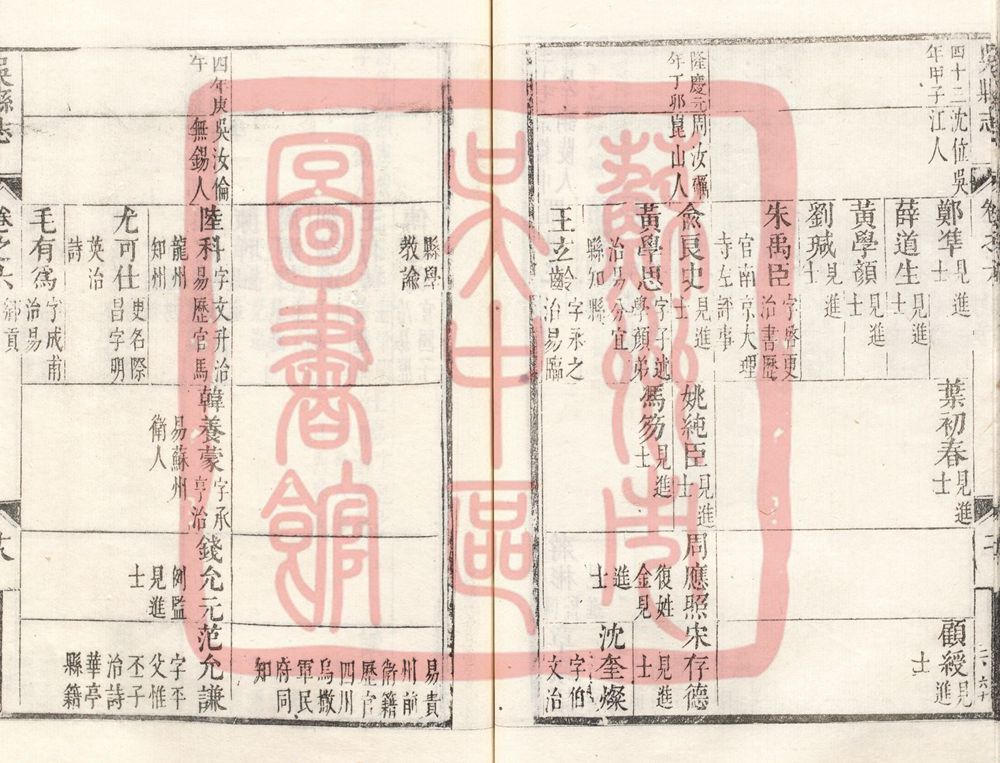 吳縣志
卷之六
四十二年甲子
沈位吳江人
鄭準見進士
薛道生見進士
黃學顏見進士
劉瑊見進士
葉初春見進士
顧綬見進士
朱禹臣字啓更治書歷官南京大理寺左評事
隆慶元年丁卯
周汝礪崑山人
兪良史見進士
黃學思字子遜學顏弟治易分宜縣知縣
王玄齡字承之治易臨
姚純臣見進士
馮笏見進士
周應照復姓金見進士
宋存德見進士
沈奎燦字伯文治
縣學教諭
易貴州前衛籍歷官四川烏撒軍民府同知
四年庚午
吳汝倫無錫人
陸科字文升治易歷官馬龍州知州
尤可仕更名際昌字明英治詩
毛有爲字成甫治易鄉貢
韓養蒙字承亨治易蘇州衛人
錢允元例監見進士
范允謙字平父惟丕子治詩華亭縣籍
吳縣志
卷之六
蘇州市吳中區圖書館